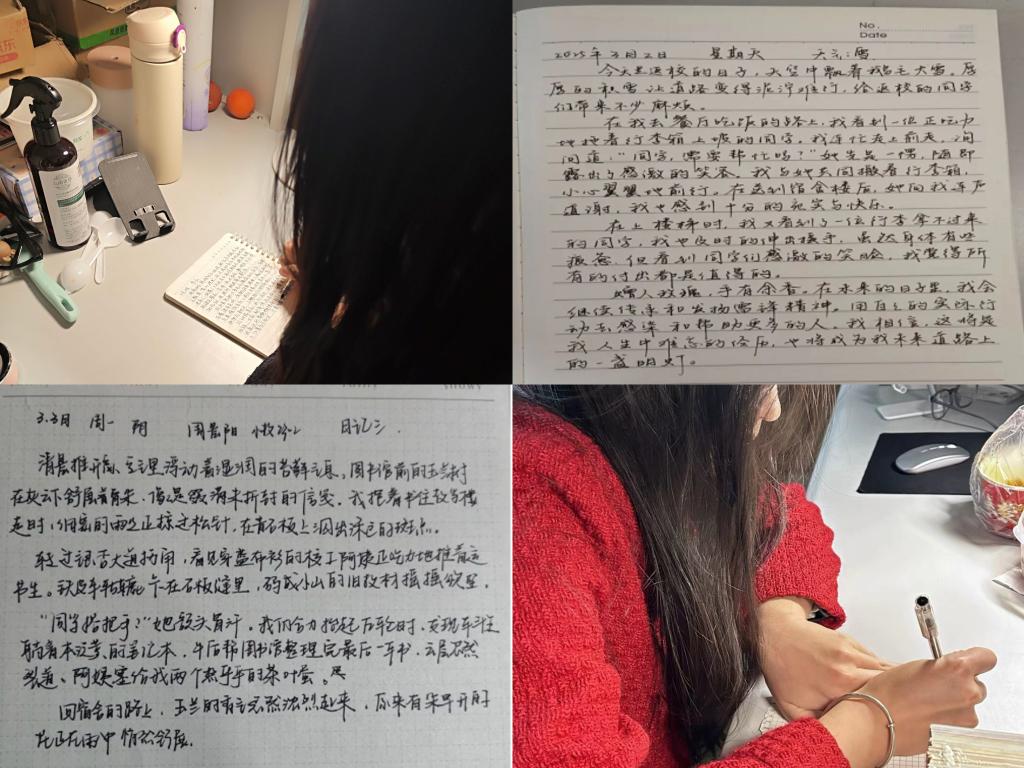 No.
Date
2025年3月2日 星期天 天气:雪
今天是返校的日子，天空中飘着鹅毛大雪。厚
厚的积雪让道路变得泥泞难行，给返校的同学
们带来不少麻烦。
在我去餐厅吃饭的路上，我看到一位正吃力
地拖着行李箱上坡的同学。我连忙走上前去，询
问道：“同学，需要帮忙吗？”她先是一愣，随即
露出了感激的笑容。我与她共同搬着行李箱，
小心翼翼地前行。在送到宿舍楼后，她向我连声
道谢，我也感到十分的充实与快乐。
在上楼梯时，我又看到了一位行李拿不过来
的同学，我也及时的伸出援手，虽然身体有些
疲惫，但看到同学们感激的笑脸，我觉得所
有的付出都是值得的。
赠人玫瑰，手有余香。在未来的日子里，我会
继续传承和发扬雷锋精神。用自己的实际行
动去感染和帮助更多的人。我相信，这将是
我人生中难忘的经历，也将成为我未来道路上
的一盏明灯。
3.3日 周一 阴 日记
清晨推开窗，空气里浮动着湿润的苔藓气息，图书馆前的玉兰树
在灰云下舒展着，像是未拆封的信笺。我抱着书往教学楼
走时，正掠过松针，在青石板上洇出深色的斑点。
转过拐角，看见穿蓝布衫的校工阿姨正吃力地推着运
书车。卡在石板缝里，码成小山的旧教材摇摇欲坠。
“同学搭把手？”她额头有汗。我们合力抬起后轮时，发现车斗里
躺着本泛黄的笔记本，午后帮图书馆整理完最后一车书，云层忽然
裂道，阿姨塞给我两个热乎乎的茶叶蛋。
回宿舍的路上，玉兰的香气忽然浓烈起来，原来有朵早开的
花正在雨中悄然舒展。